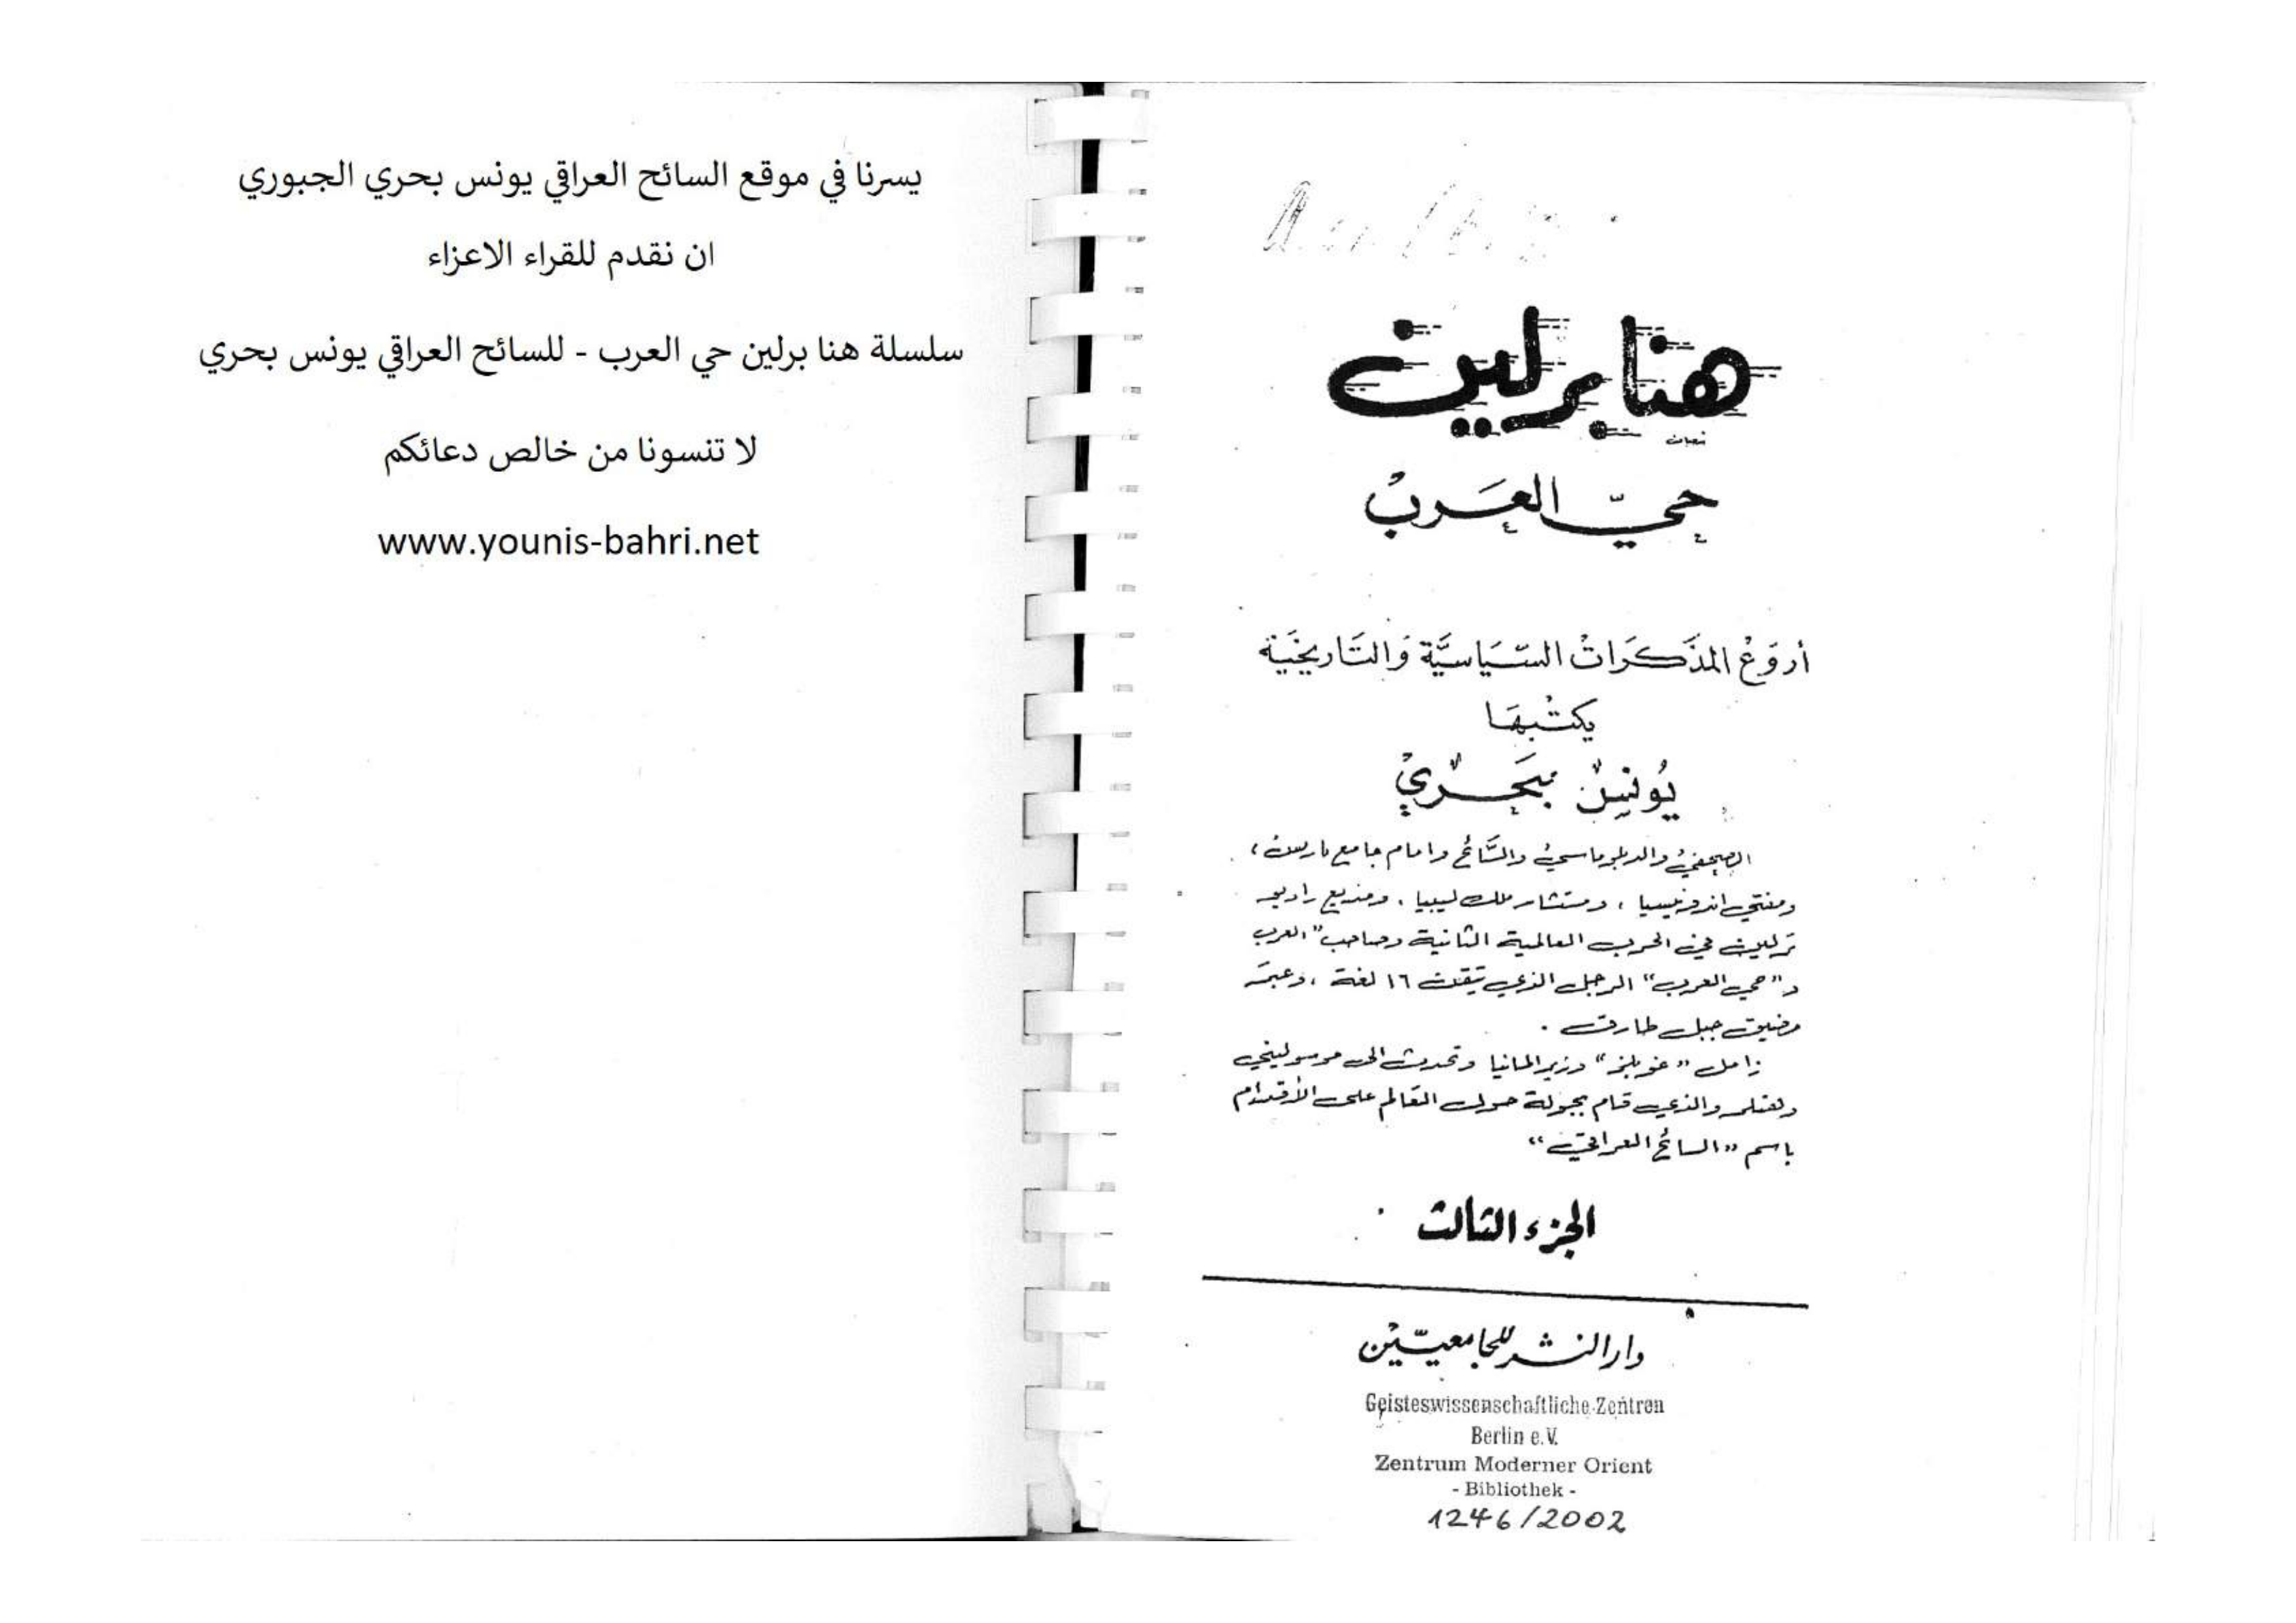 يسرنا في موقع السائح العراقي يونس بحري الجبوري
ان نقدم للقراء الاعزاء
سلسلة هنا برلين حي العرب - للسائح العراقي يونس بحري
لا تنسونا من خالص دعائكم
www.younis-bahri.net
هنا برلين
حيّ العَرَبْ
أروَعْ المذَّكرَاتْ السّيَاسيَّة وَالتَاريخيَة
يكتْبهَا
يُونسْ بَحَريْ
الصحفيْ والدبلوماسيْ والسَّائح وامام جامع باريسْ،
ومفتي اندونيسيا ، ومستشار ملك ليبيا ، ومذيع راديو
بَرلين في الحرب العالمية الثانية وصاحب "العرب
و "حي العرب" الرجل الذي يتقن ١٦ لغة ، وعبَر
مضيق جبل طارق .
زامل "غوبلز" وزير المانيا وتحدث الى موسوليني
وهتلر والذي قام بجولة حول العَالم على الأقدَام
باسم "السائح العراقيّ"
الجزء الثالث
دار النشر للجامعيّين
Geisteswissenschaftliche Zentren
Berlin e.V.
Zentrum Moderner Orient
- Bibliothek -
1246/2002